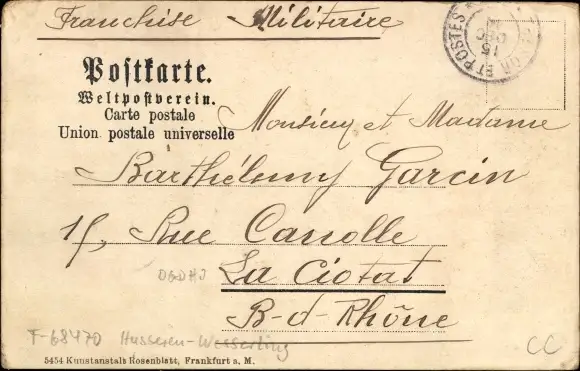 Franchise Militaire
ET POSTES
15
DEC
Postkarte.
Weltpostverein.
Carte postale
Union postale universelle
Monsieur et Madame
Barthélemy Garcin
15, Rue Canolle
La Ciotat
B-d-Rhône
F-68470 Husseren-Wesserling
CC
5454 Kunstanstalt Rosenblatt, Frankfurt a. M.